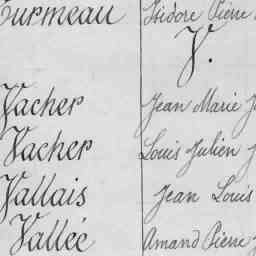 Turmeau Isidore Pierre
V.
Vacher Jean Marie
Vacher Louis Julien
Vallais Jean Louis
Vallée Amand Pierre